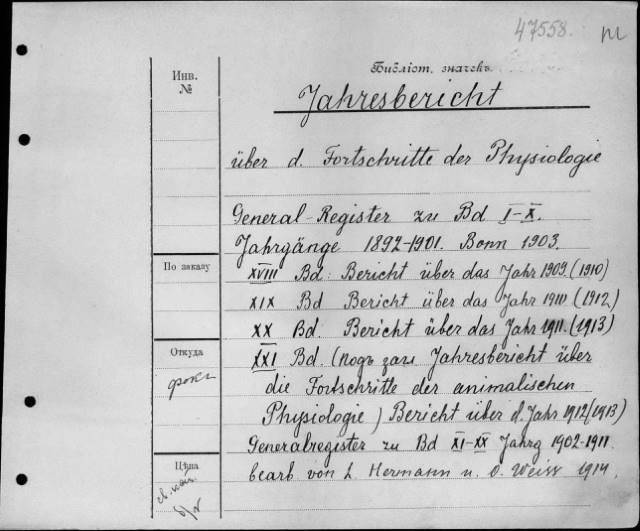 47558.
Инв. №
Бібліот. значекъ
Jahresbericht
über d. Fortschritte der Physiologie
General-Register zu Bd I-X.
Jahrgänge 1892-1901. Bonn 1903.
По заказу
XVIII Bd: Bericht über das Jahr 1909. (1910)
XIX Bd Bericht über das Jahr 1910 (1912)
XX Bd. Bericht über das Jahr 1911. (1913)
Откуда
XXI Bd. (подъ загл Jahresbericht über
die Fortschritte der animalischen
Physiologie) Bericht über d. Jahr 1912 (1913)
Generalregister zu Bd XI-XX Jahrg 1902-1911
Цѣна
bearb von L. Hermann u. O. Weiss 1914.